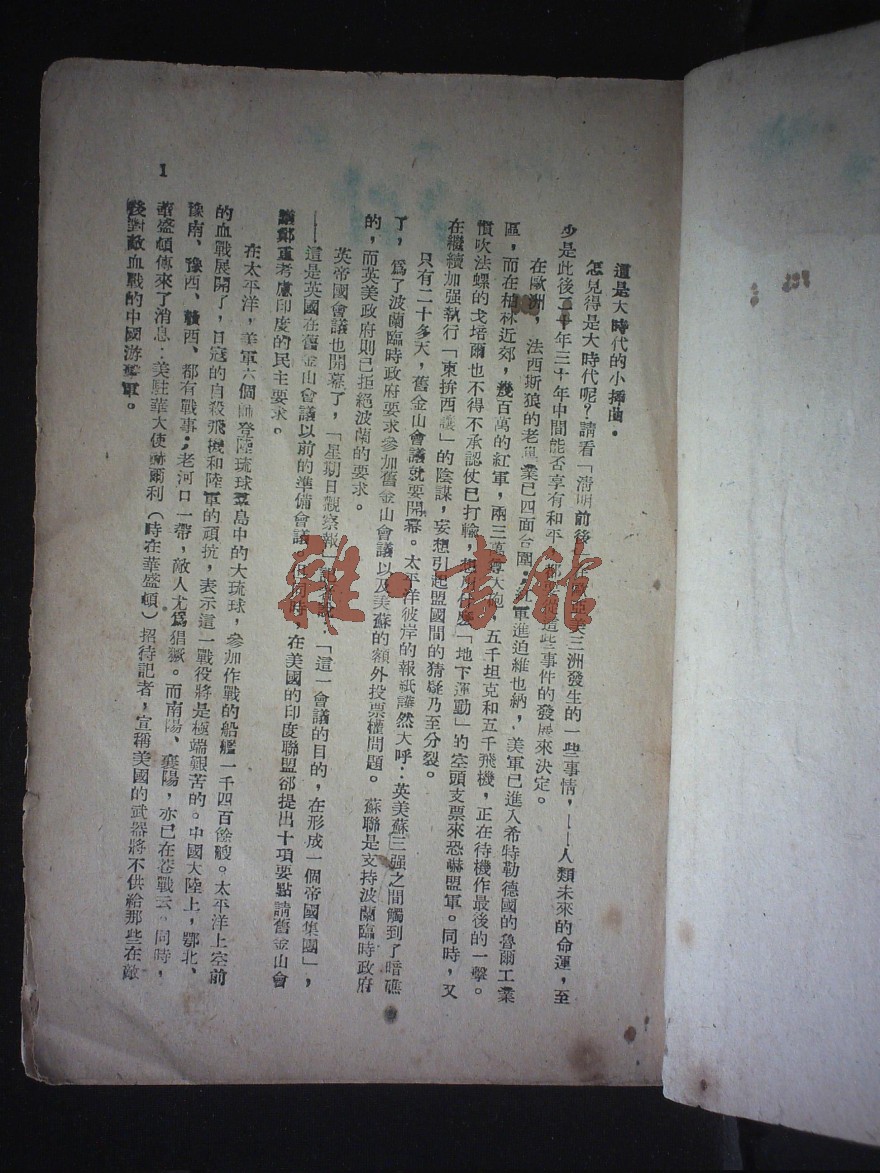 這是大時代的小插曲。
怎見得是大時代呢?請看「清明前後」歐亞美三洲發生的一些事情,——人類未來的命運,至
少是此後二十年三十年中間能否享有和平,
這些事件的發展來決定。
在歐洲,法西斯狼的老巢業已四面合圍:紅軍進迫維也納,美軍已進入希特勒德國的魯爾工業
區,而在柏林近郊,幾百萬的紅軍,兩三萬尊大炮,五千坦克和五千飛機,正在待機作最後的一擊。
慣吹法螺的戈培爾也不得不承認仗已打輸,
「地下運動」的空頭支票來恐嚇盟軍。同時,又
在繼續加强執行「東拚西讓」的陰謀,妄想引起盟國間的猜疑乃至分裂。
只有二十多天,舊金山會議就要開幕。太平洋彼岸的報紙譁然大呼:英美蘇三强之間觸到了暗礁
了,爲了波蘭臨時政府要求參加舊金山會議以及美蘇的額外投票權問題。蘇聯是支持波蘭臨時政府
的,而英美政府則已拒絕波蘭的要求。
英帝國會議也開幕了,「星期日觀察報」記者說:「這一會議的目的,在形成一個帝國集團」,
——這是英國在舊金山會議以前的準備會議。但同時,在美國的印度聯盟卻提出十項要點請舊金山會
議鄭重考慮印度的民主要求。
在太平洋,美軍六個師登陸琉球羣島中的大琉球,參加作戰的船艦一千四百餘艘。太平洋上空前
的血戰展開了,日寇的自殺飛機和陸軍的頑抗,表示這一戰役將是極端艱苦的。中國大陸上,鄂北、
豫南、豫西、贛西、都有戰事;老河口一帶,敵人尤爲猖獗。而南陽、襄陽,亦已在巷戰云。同時,
華盛頓傳來了消息:美駐華大使赫爾利(時在華盛頓)招待記者,宣稱美國的武器將不供給那些在敵
後對敵血戰的中國游擊軍。
1
雜·書館